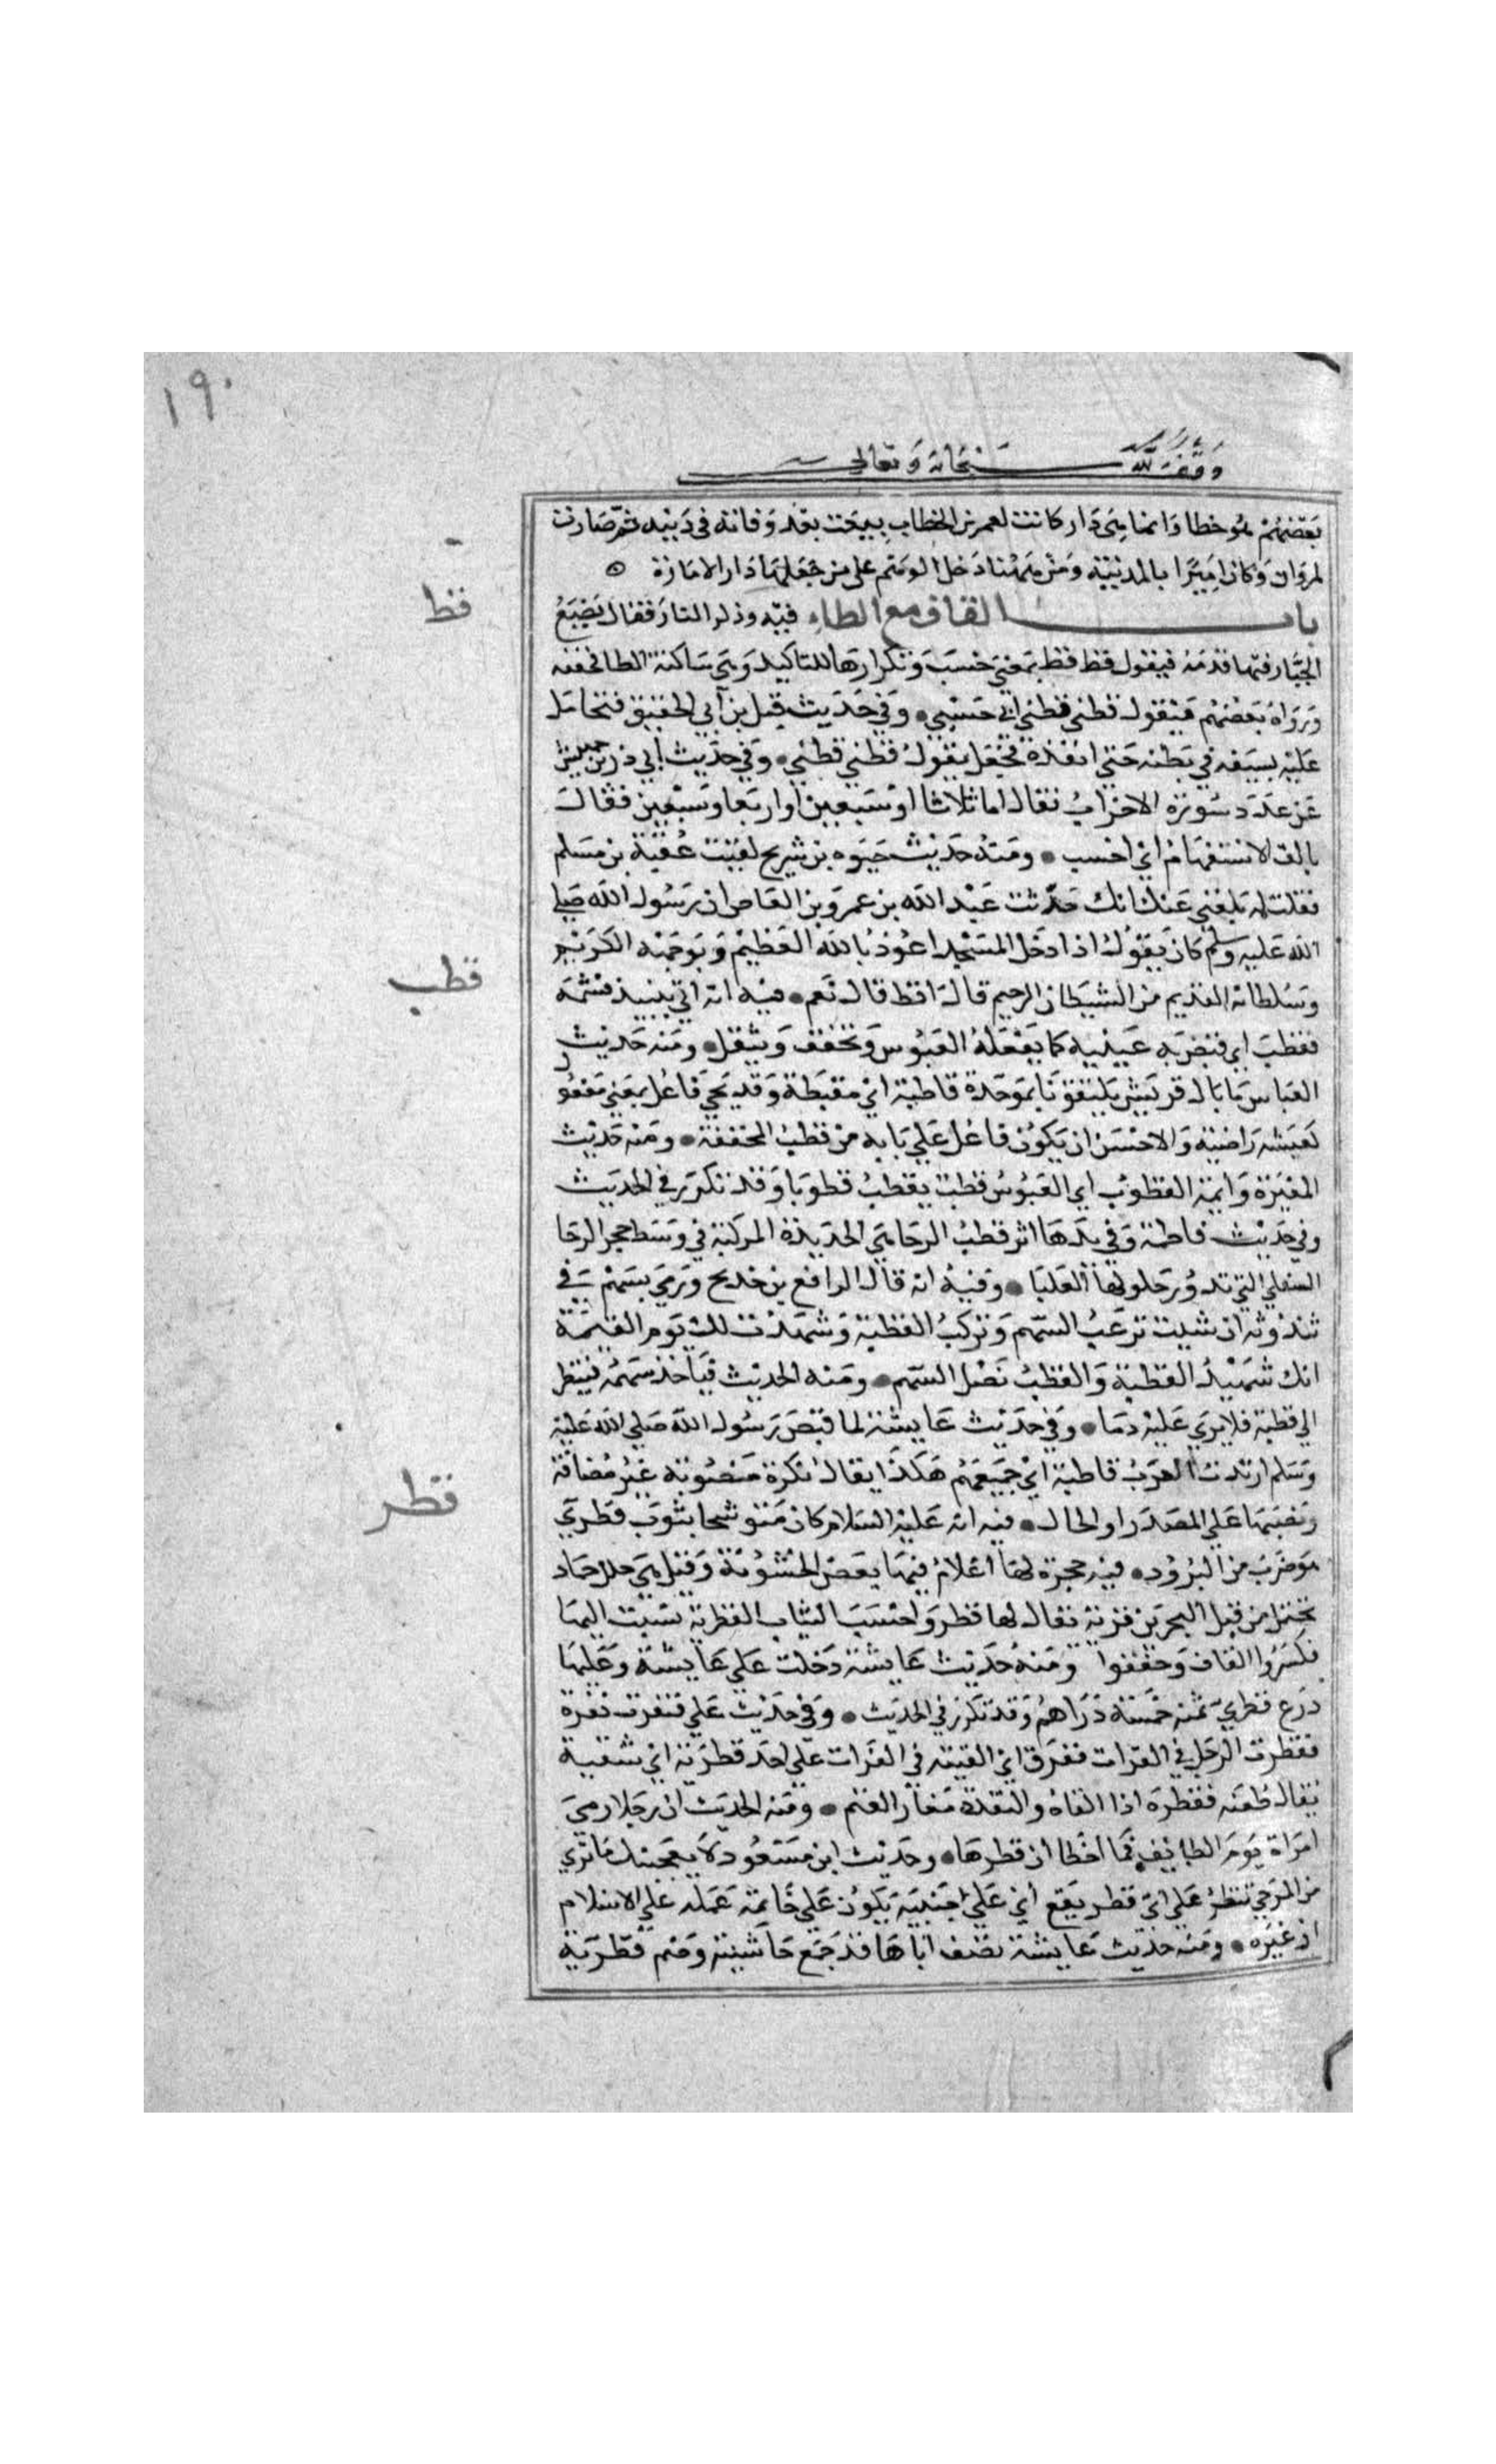 ١٩٠
وقف لله سبحانه وتعالى
بعضهم هو خطا وانما هي دار كانت لعمر بن الخطاب بيعت بعد وفاته في دينه ثم صارت
لمروان وكان اميرا بالمدينة ومن ههنا دخل الوهم على من جعلها دار الامارة
قط
باب القاف مع الطاء فيه وذكر النار فقال يضع
الجبار فيها قدمه فيقول قط قط بمعنى حسب وتكرارها للتاكيد وهي ساكنة الطا مخففه
ورواه بعضهم فيقول قطني قطني اي حسبي وفي حديث قتل بن ابي الحقيق فتحامل
عليه بسيفه في بطنه حتى انفذه فجعل يقول قطني قطني وفي حديث ابي ذر بن حبيش
عن عدد سورة الاحزاب فقال اما ثلاثا او سبعين او اربعا وسبعين فقال
بالف الاستفهام اي احسب ومنه حديث حيوه بن شريح لقيت عقبة بن مسلم
فقلت له بلغني عنك انك حدثت عبد الله بن عمرو بن العاص ان رسول الله صلى
الله عليه وسلم كان يقول اذا دخل المسجد اعوذ بالله العظيم وبوجهه الكريم
قطب
وسلطانه القديم من الشيطان الرجيم قال اقط قال نعم فيه انه اتي بنبيذ فشمه
فقطب اي قبض به عينيه كما يفعله العبوس وتخفف وتثقل ومنه حديث
العباس ما بال قريش يلتقونا بموحدة قاطبة اي مقبطة وقد يجي فاعل بمعنى مفعو
ل
كعيشة راضية والاحسن ان يكون فاعل على بابه من قطب المخففة ومنه حديث
المغيرة وايمة القطوب اي العبوس قطب يقطب قطوبا وقد تكرر في الحديث
وفي حديث فاطمة وفي يدها اثر قطب الرحا هي الحديدة المركبة في وسط حجر الرحا
السفلي التي تدور حلولها العليا وفيه انه قال الرافع بن خديج ورمي بسهم في
ثندوته ان شيت نزعت السهم وتركت القطبة وشهدت لك يوم القيمة
انك شهيد القطبة والقطب نصل السهم ومنه الحديث فياخذ سهمه فينظر
الى قطبة فلا يري عليه دما وفي حديث عايشة لما قبض رسول الله صلى الله عليه
وسلم ارتدت العرب قاطبة اي جميعهم هكذا يقال نكرة منصوبة غير مضافة
قطر
ونصبها على المصدر او الحال فيه انه عليه السلام كان متوشحا بثوب قطري
هو ضرب من البرود فيه حجرة لها اعلام فيها بعض الخشونة وقيل هي حلل جياد
تحمل من قبل البحرين قرية يقال لها قطر واحسب الثياب القطرية نسبت اليها
فكسروا القاف وخففوا ومنه حديث عايشة دخلت على عايشة وعليها
درع قطري ثمنه خمسة دراهم وقد تكرر في الحديث وفي حديث علي فنفرت نقرة
فقطرت الرجل في الفرات فغرق اي القيته في الفرات على احد قطريه اي شقيه
يقال طعنه فقطره اذا القاه والنقده صغار الغنم ومنه الحديث ان رجلا رمى
امراة يوم الطايف فما اخطا ان قطرها وحديث ابن مسعود لا يعجبنك ما ترى
من المرء حتى تنظر على اي قطريه يقع اي على جنبيه يكون على خاتمة عمله على الاسلام
او غيره ومنه حديث عايشة تصف اباها قد جمع حاشيته وضم قطريه